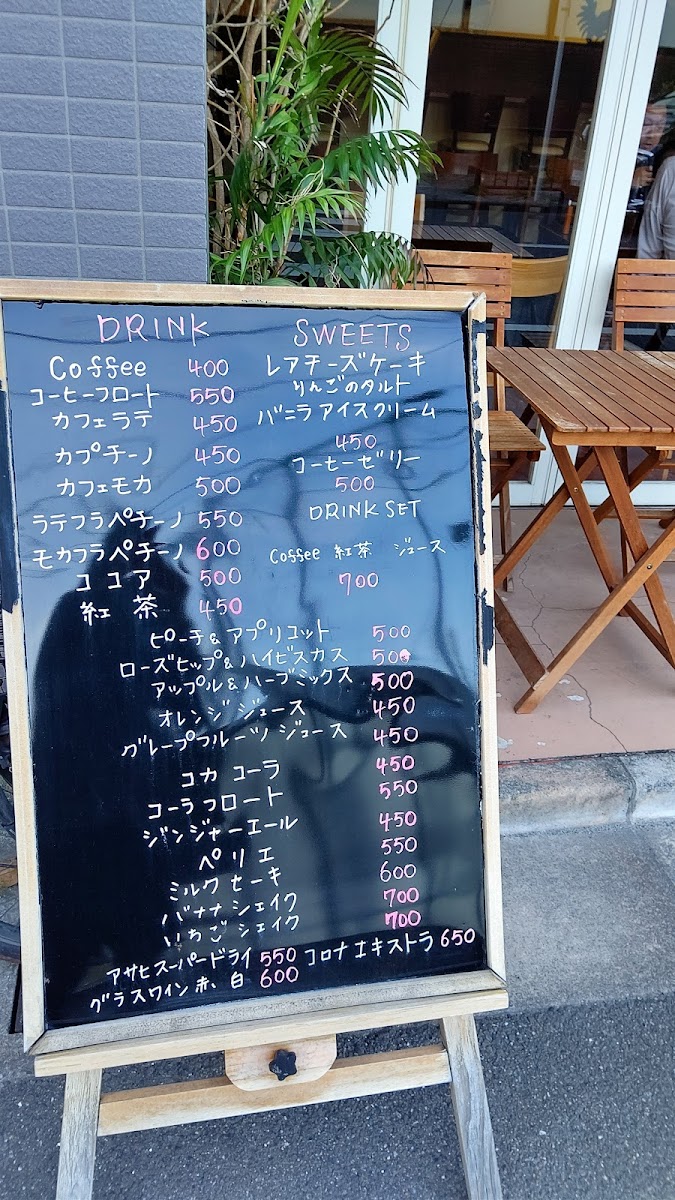 DRINK
Coffee 400
コーヒーフロート 550
カフェラテ 450
カプチーノ 450
カフェモカ 500
ラテフラペチーノ 550
モカフラペチーノ 600
ココア 500
紅茶 450
SWEETS
レアチーズケーキ
りんごのタルト
バニラアイスクリーム
450
コーヒーゼリー
500
DRINK SET
Coffee 紅茶 ジュース
700
ピーチ&アプリコット 500
ローズヒップ&ハイビスカス 500
アップル&ハーブミックス 500
オレンジジュース 450
グレープフルーツジュース 450
コカコーラ 450
コーラフロート 550
ジンジャーエール 450
ペリエ 550
ミルクセーキ 600
バナナシェイク 700
いちごシェイク 700
アサヒスーパードライ 550 コロナエキストラ 650
グラスワイン赤、白 600